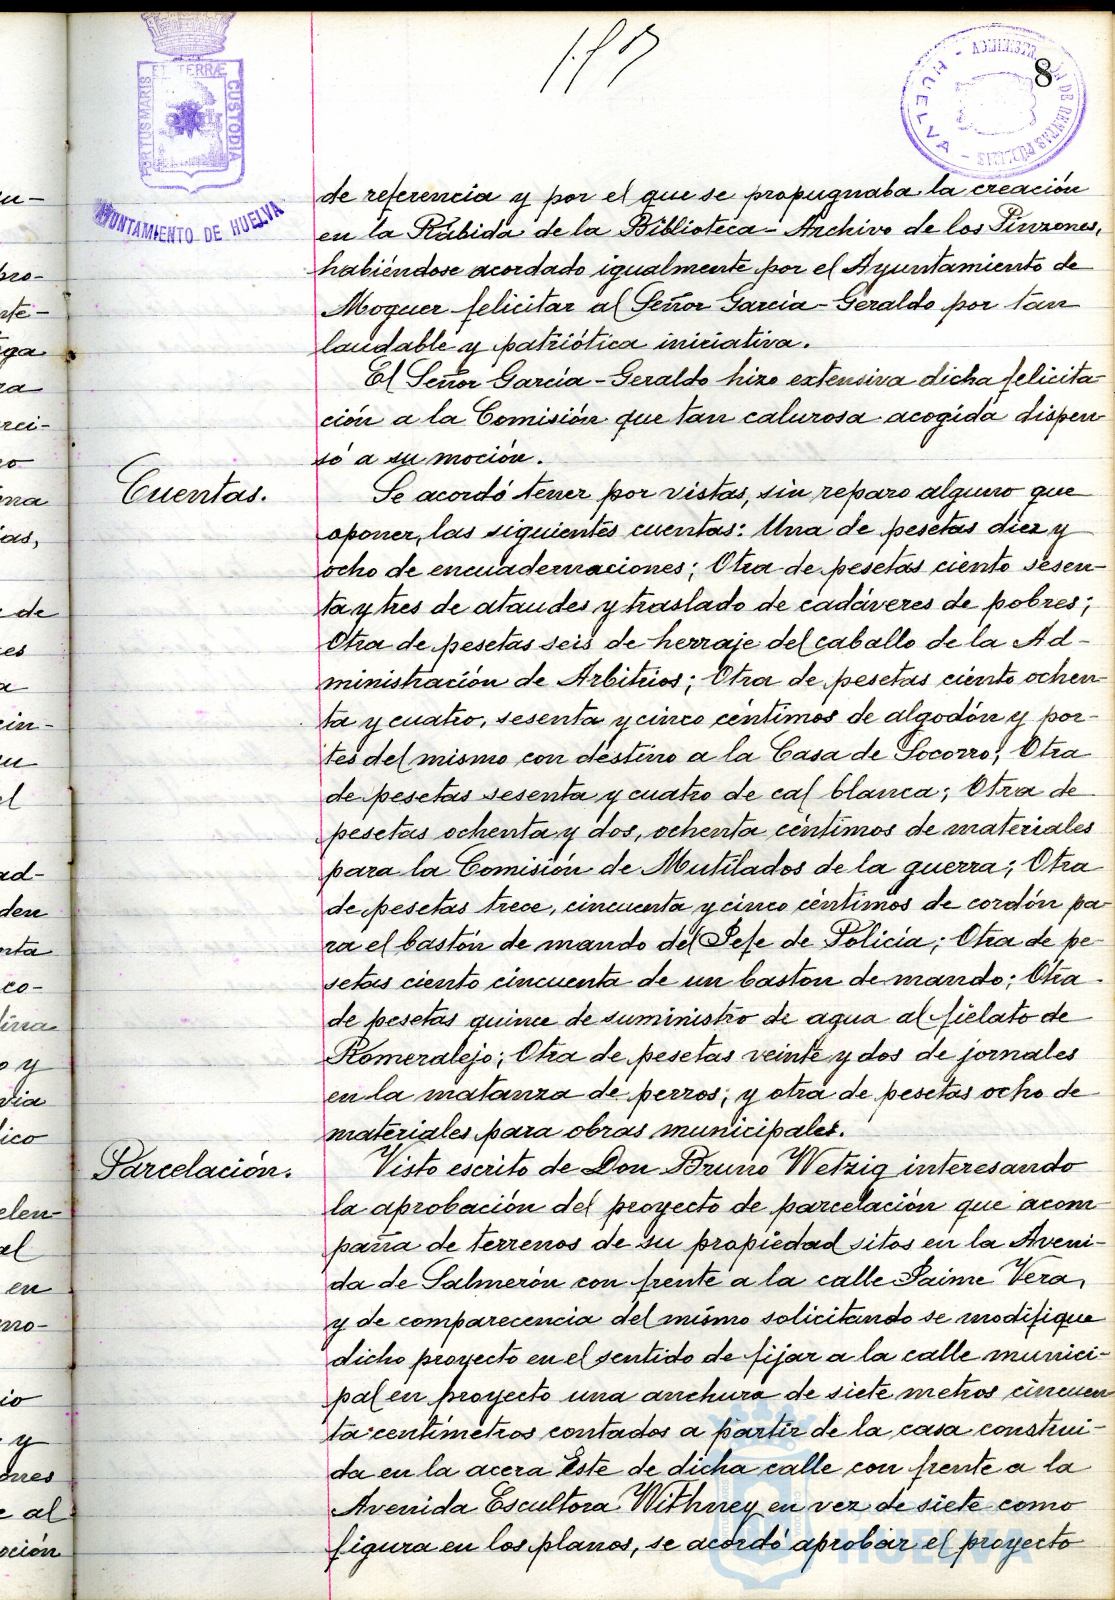 8
ET TERRÆ
PORTUS MARIS
CUSTODIA
AYUNTAMIENTO DE HUELVA
HUELVA
de referencia y por el que se propugnaba la creación
en la Rábida de la Biblioteca-Archivo de los Pinzones,
habiéndose acordado igualmente por el Ayuntamiento de
Moguer felicitar al Señor García-Geraldo por tan
laudable y patriótica iniciativa.
El Señor García-Geraldo hizo extensiva dicha felicita-
ción a la Comisión que tan calurosa acogida dispen-
só a su moción.
Cuentas.
Se acordó tener por vistas, sin reparo alguno que
oponer, las siguientes cuentas: Una de pesetas diez y
ocho de encuadernaciones; Otra de pesetas ciento sesen-
ta y tres de ataudes y traslado de cadáveres de pobres;
Otra de pesetas seis de herraje del caballo de la Ad-
ministración de Arbitrios; Otra de pesetas ciento ochen-
ta y cuatro, sesenta y cinco céntimos de algodón y por-
tes del mismo con destino a la Casa de Socorro; Otra
de pesetas sesenta y cuatro de cal blanca; Otra de
pesetas ochenta y dos, ochenta céntimos de materiales
para la Comisión de Mutilados de la guerra; Otra
de pesetas trece, cincuenta y cinco céntimos de cordón pa-
ra el bastón de mando del Jefe de Policía; Otra de pe-
setas ciento cincuenta de un baston de mando; Otra
de pesetas quince de suministro de agua al fielato de
Romeralejo; Otra de pesetas veinte y dos de jornales
en la matanza de perros; y otra de pesetas ocho de
materiales para obras municipales.
Parcelación.
Visto escrito de Don Bruno Wetzig interesando
la aprobación del proyecto de parcelación que acom-
paña de terrenos de su propiedad sitos en la Aveni-
da de Salmerón con frente a la calle Jaime Vera,
y de comparecencia del mismo solicitando se modifique
dicho proyecto en el sentido de fijar a la calle munici-
pal en proyecto una anchura de siete metros cincuen
ta centímetros contados a partir de la casa construi-
da en la acera Este de dicha calle con frente a la
Avenida Escultora Withney en vez de siete como
figura en los planos, se acordó aprobar el proyecto
HUELVA